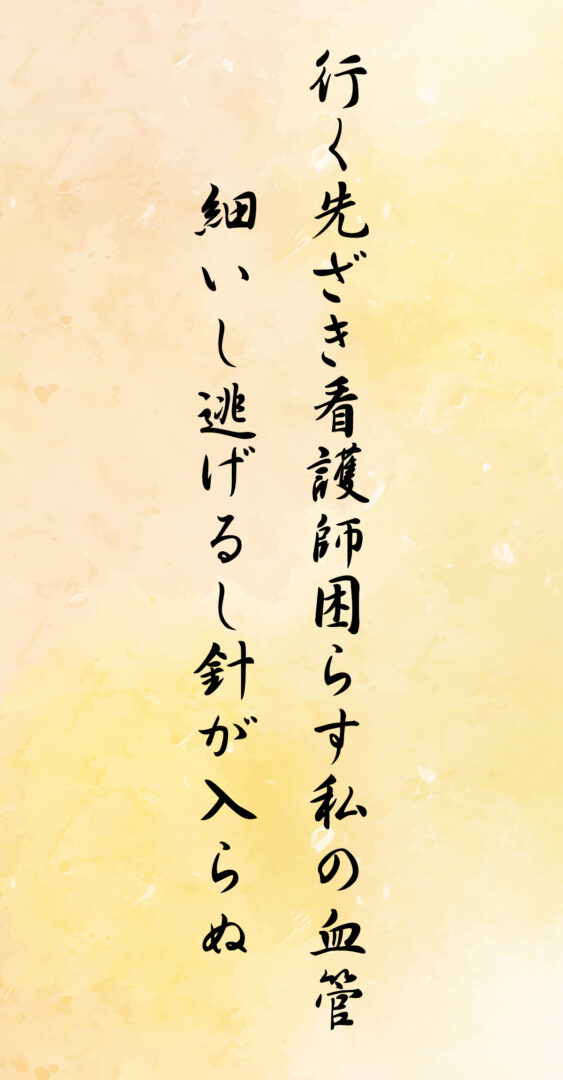 行く先ざき看護師困らす私の血管
細いし逃げるし針が入らぬ